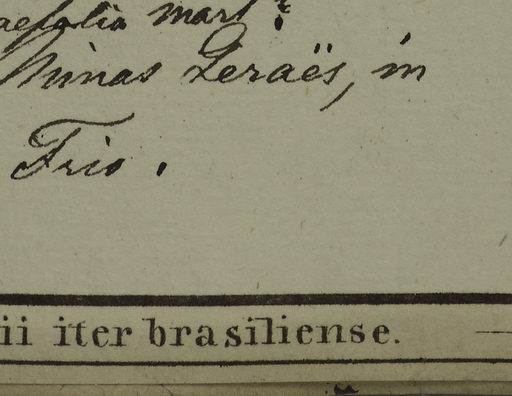 aefolia Mart?
Minas Geraës, in
Frio.
ii iter brasiliense.